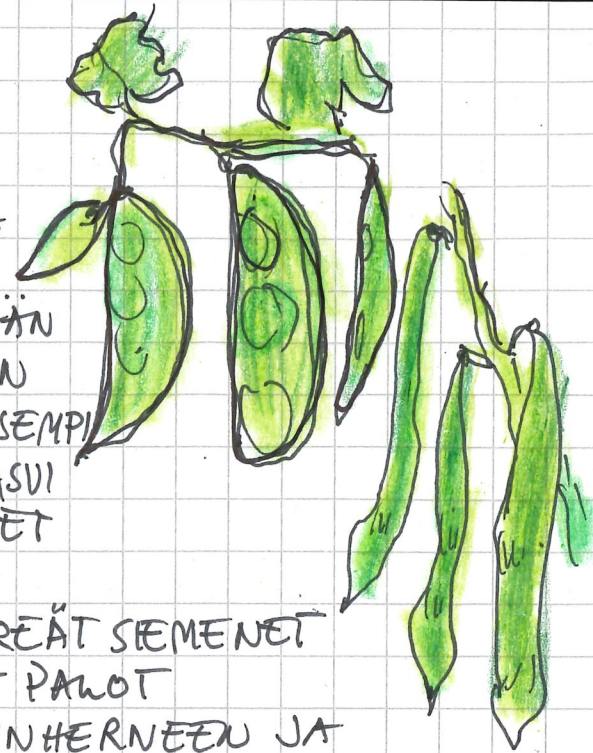 ÄN
N
SEMPI
ASVI
ET
REÄT SIEMENET
T PALOT
NHERNEEN JA